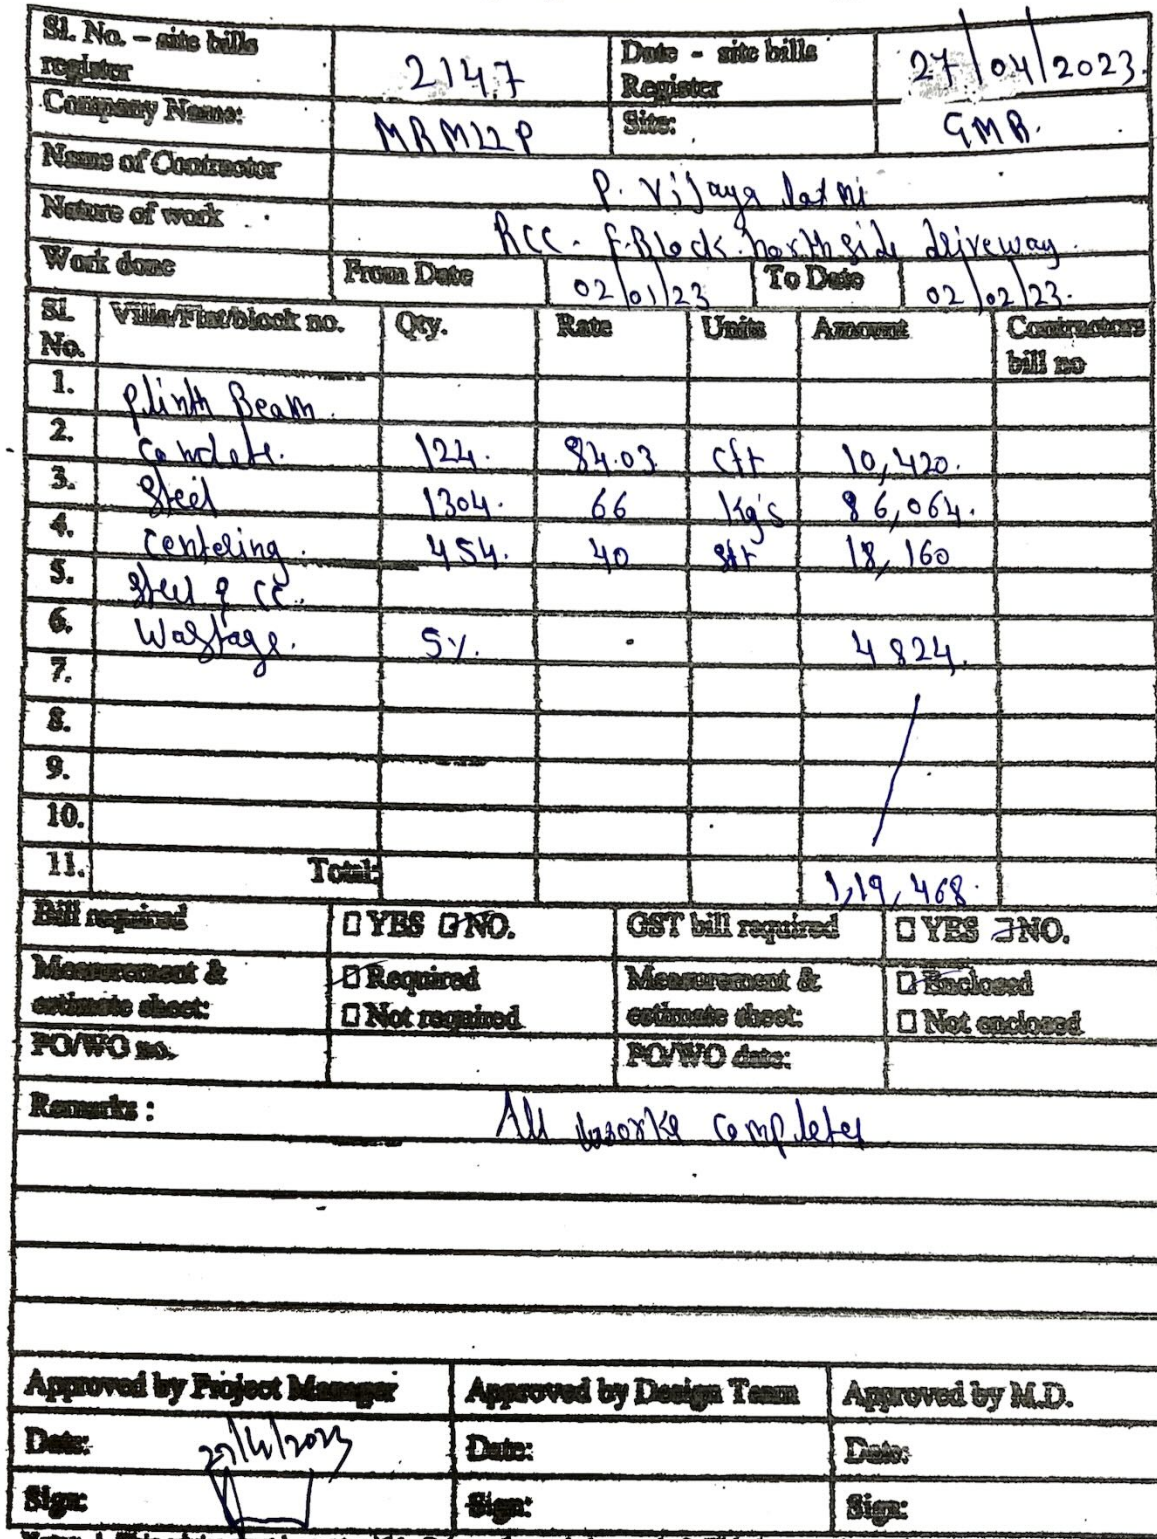 Sl. No. – site bills register 2147 Date - site bills Register 27/04/2023.
Company Name: MRMLLP Site: GMR.
Name of Contractor P. Vijaya laxmi
Nature of work RCC - F-Block north side driveway.
Work done From Date 02/01/23 To Date 02/02/23.
Sl. No. Villa/Flat/block no. Qty. Rate Units Amount Contractors bill no
1. plinth Beam.
2. Concrete. 124. 84.03 cft 10,420.
3. Steel 1304. 66 kg's 86,064.
4. Centering. 454. 40 sft 18,160
5. Steel & CC.
6. Wastage. 5%. 4824.
7.
8.
9.
10.
11. Total: 1,19,468.
Bill required YES NO. GST bill required YES NO.
Measurement & estimate sheet: Required Not required Measurement & estimate sheet: Enclosed Not enclosed
PO/WO no. PO/WO date:
Remarks : All completed
Approved by Project Manager Approved by Design Team Approved by M.D.
Date: Date: Date:
Sign: Sign: Sign: